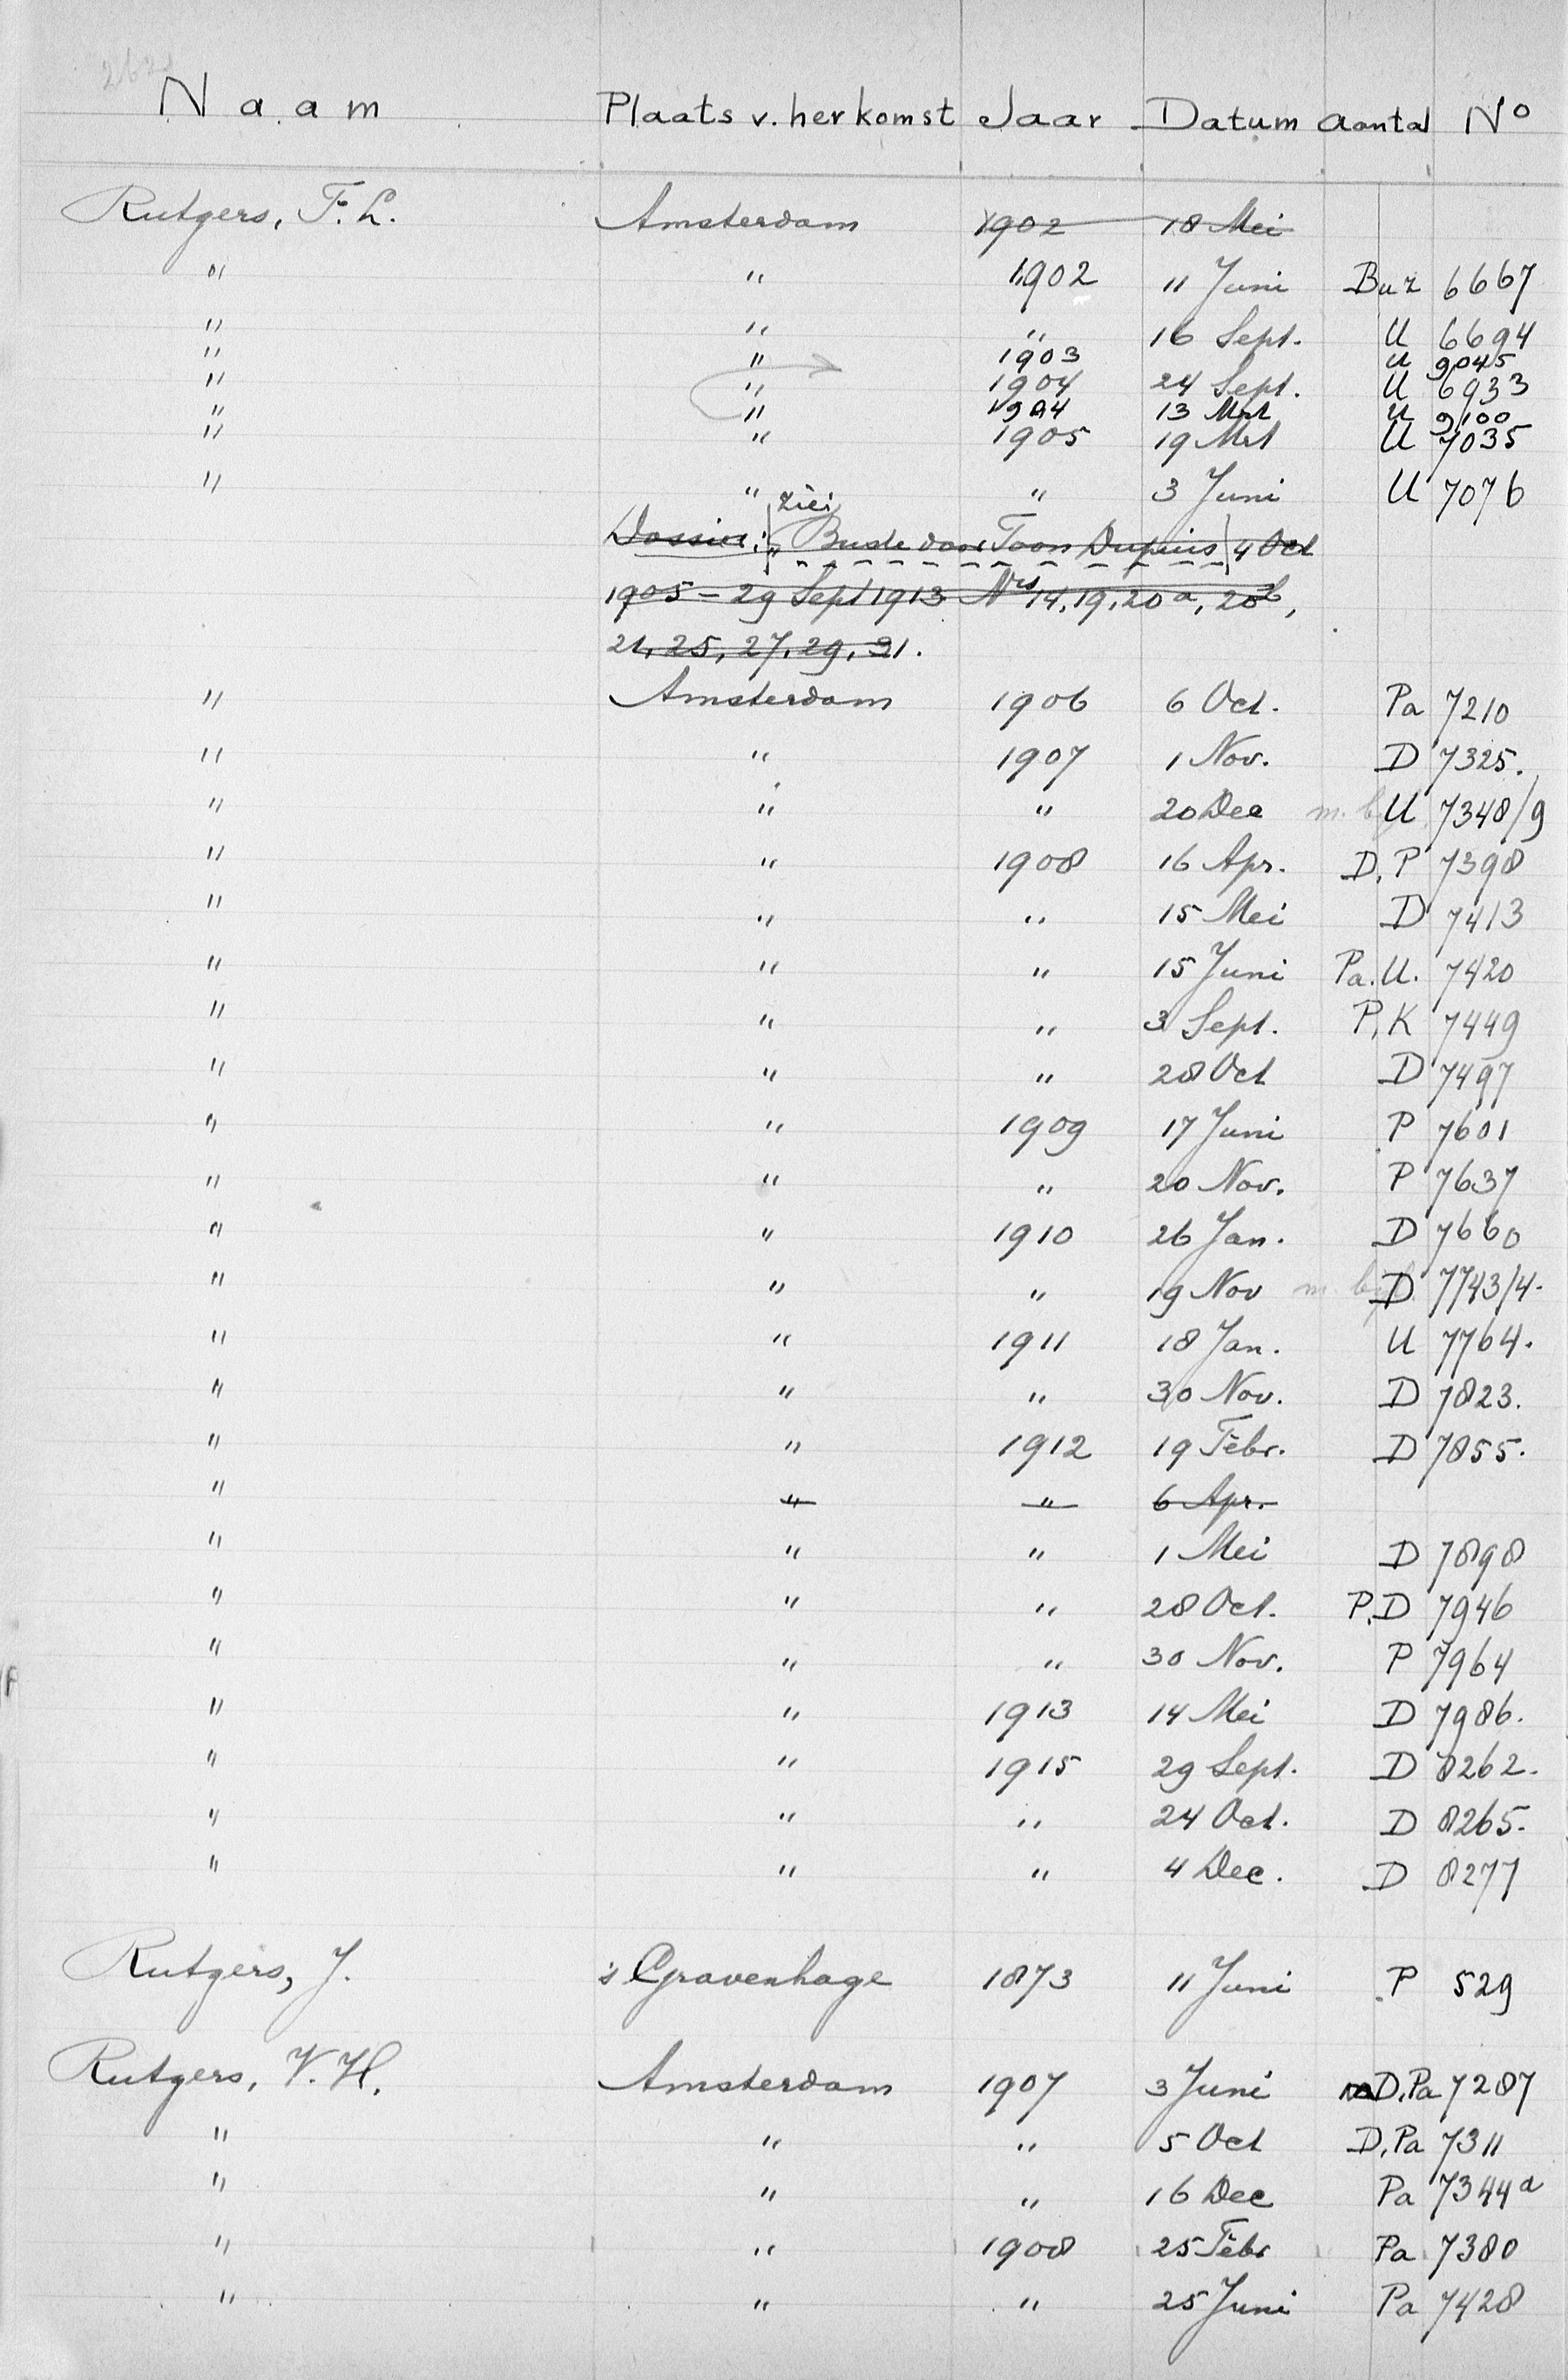 Naam Plaats v. herkomst Jaar Datum aantal No
Rutgers, F. L. Amsterdam 1902 18 Mei
" " 1902 11 Juni Buz 6667
" " " 16 Sept. U 6694
" " 1903 U 9045
" " 1904 24 Sept. U 6933
" " 1904 13 Mrt U 9100
" " 1905 19 Mrt U 7035
" " " 3 Juni U 7076
zie
Dossier: „Buste door Toon Dupuis 4 Oct
1905 – 29 Sept 1913 Nrs 14, 19, 20a, 20b,
21, 25, 27, 29, 31.
" Amsterdam 1906 6 Oct. Pa 7210
" " 1907 1 Nov. D 7325.
" " " 20 Dec m. bijl. U 7348/9
" " 1908 16 Apr. D. P 7398
" " " 15 Mei D 7413
" " " 15 Juni Pa. U. 7420
" " " 3 Sept. P, K 7449
" " " 28 Oct D 7497
" " 1909 17 Juni P 7601
" " " 20 Nov. P 7637
" " 1910 26 Jan. D 7660
" " " 19 Nov m. bijl. D 7743/4.
" " 1911 18 Jan. U 7764.
" " " 30 Nov. D 7823.
" " 1912 19 Febr. D 7855.
" " " 6 Apr.
" " " 1 Mei D 7898
" " " 28 Oct. P. D 7946
" " " 30 Nov. P 7964
" " 1913 14 Mei D 7986.
" " 1915 29 Sept. D 8262.
" " " 24 Oct. D 8265.
" " " 4 Dec. D 8277
Rutgers, J. 's Gravenhage 1873 11 Juni P 529
Rutgers, V. H. Amsterdam 1907 3 Juni D, Pa 7287
" " " 5 Oct D, Pa 7311
" " " 16 Dec Pa 7344a
" " 1908 25 Febr Pa 7380
" " " 25 Juni Pa 7428